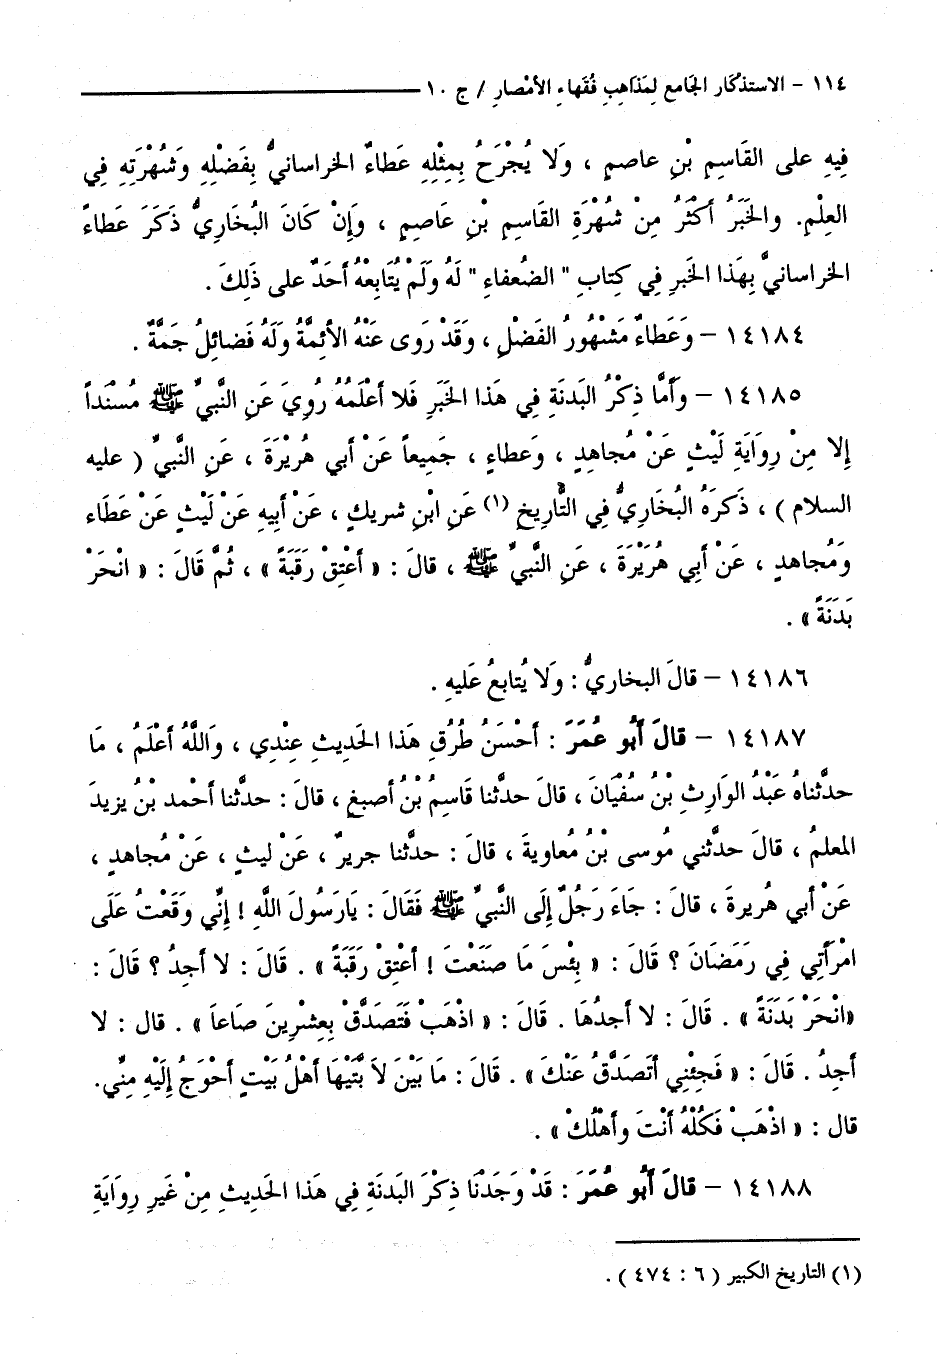 ١١٤ - الاستذكار الجامع لمذاهب فقهاء الأمصار / ج ١٠
فِيهِ على القَاسِمِ بْنِ عاصمٍ ، وَلا يُجْرَحُ بِمِثْلِهِ عَطاءٌ الخراسانيُّ بِفَضْلِهِ وَشُهْرَتِهِ فِي
العِلْمِ. والخَبَرُ أكْثَرُ مِنْ شُهْرَةِ القَاسِمِ بْنِ عَاصِمٍ ، وَإِنْ كَانَ البُخَارِيُّ ذَكَرَ عَطاءً
الخراسانيَّ بِهَذا الخَبرِ فِي كِتابِ " الضُعفاءِ " لَهُ وَلَمْ يُتَابِعْهُ أَحَدٌ على ذَلِكَ .
١٤١٨٤ – وَعَطاءٌ مَشْهُورُ الفَضْلِ ، وَقَدْ رَوى عَنْهُ الأئِمَّةُ وَلَهُ فَضائِلُ جَمَّةٌ .
١٤١٨٥ – وَأمَّا ذِكْرُ البَدَنَةِ فِي هَذا الخَبَرِ فَلا أعْلَمُهُ رُوِيَ عَنِ النَّبِيِّ ﷺ مُسْنَداً
إلا مِنْ رِوَايَةِ لَيْثٍ عَنْ مُجاهِدٍ ، وَعطاءٍ ، جَمِيعاً عَنْ أبي هُرَيْرَةَ ، عَنِ النَّبِيِّ ( عليه
السلام ) ، ذَكَرَهُ البُخَارِيُّ فِي التَّاريخِ (١) عَنِ ابْنِ شريكٍ ، عَنْ أبِيهِ عَنْ لَيْثٍ عَنْ عَطَاء
وَمُجاهدٍ ، عَنْ أبِي هُرَيْرَةَ ، عَنِ النَّبِيِّ ﷺ ، قالَ : « أعْتِقْ رَقَبَةً » ، ثُمَّ قَالَ : « انْحَرْ
بَدَنَةً » .
١٤١٨٦ – قالَ البخاريُّ : وَلا يُتابعُ عَليهِ .
١٤١٨٧ – قالَ أَبُو عُمَرَ : أحْسَنُ طُرُقِ هَذا الحَدِيثِ عِنْدِي ، وَاللَّهُ أعْلَمُ ، مَا
حدَّثناهُ عَبْدُ الوَارِثِ بْنُ سُفْيَانَ ، قالَ حدثَّنا قاسِمُ بْنُ أصبغٍ ، قالَ : حدثَّنا أحْمد بْنُ يزيدَ
المعلمُ ، قالَ حدَّثني مُوسى بْنُ مُعاويةَ ، قالَ : حدَّثنا جريرٌ ، عَنْ ليثٍ ، عَنْ مُجاهدٍ ،
عَنْ أبي هُريرةَ ، قالَ : جَاءَ رَجُلٌ إلَى النَّبِيِّ ﷺ فَقَالَ : يَارَسُولَ اللَّهِ ! إنِّي وَقَعْتُ عَلَى
امْرَأَتِي فِي رَمَضَانَ ؟ قَالَ : « بِئْسَ مَا صَنَعْتَ ! أعْتِقْ رَقَبَةً » . قَالَ : لا أجِدُ ؟ قَالَ :
«انْحَرْ بَدَنَةً » . قَالَ : لا أجدُهَا . قَالَ : « اذْهَبْ فَتَصَدَّقْ بِعِشْرِينَ صَاعاً » . قال : لا
أجِدُ . قَالَ : « فَجِئْنِي أتَصَدَّقُ عَنْكَ » . قَالَ : مَا بَيْنَ لاَبَتَّيْهَا أهْلُ بَيْتٍ أحْوَجُ إلَيْهِ مِنِّي.
قال : « اذْهَبْ فَكُلْهُ أنْتَ وأهْلُكْ » .
١٤١٨٨ – قالَ أَبُو عُمَرَ : قَدْ وَجَدْنَا ذِكْرَ البَدَنَةِ فِي هَذا الحَدِيثِ مِنْ غَيرِ رِوَايَةِ
(١) التاريخ الكبير ( ٦ : ٤٧٤ ) .